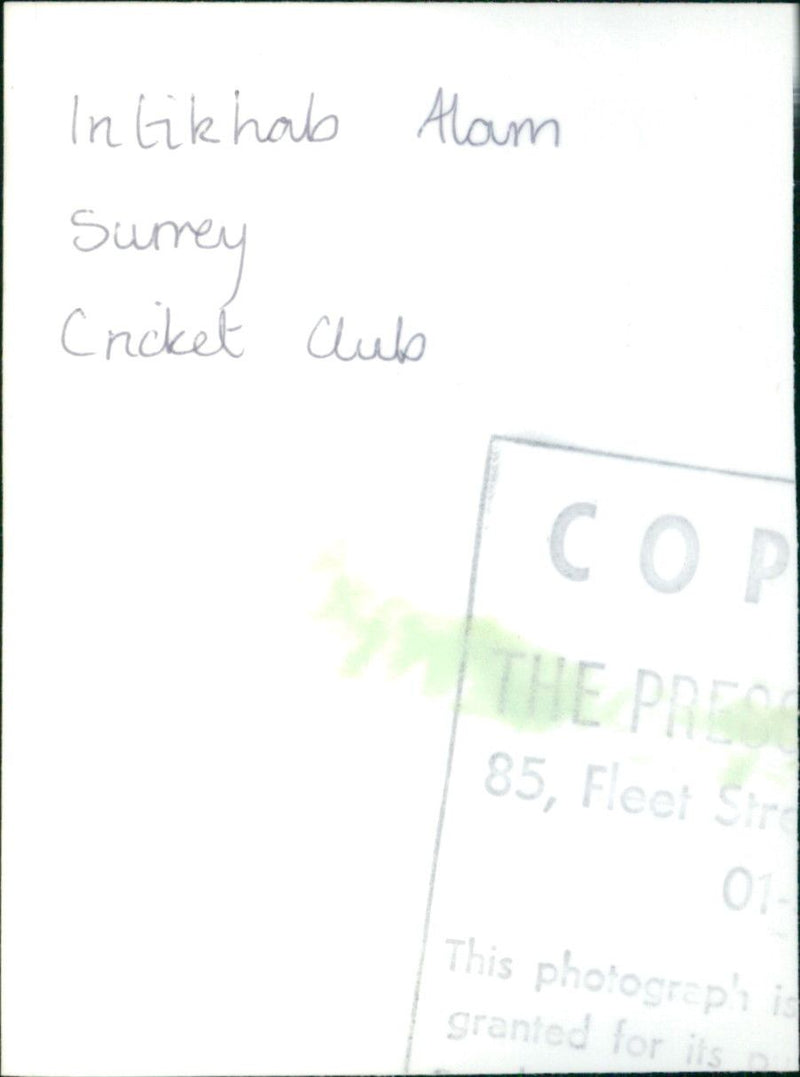 Intikhab Alam
Surrey
Cricket Club
COP
THE PRESS
85, Fleet Stre
01-
This photograph is
granted for its